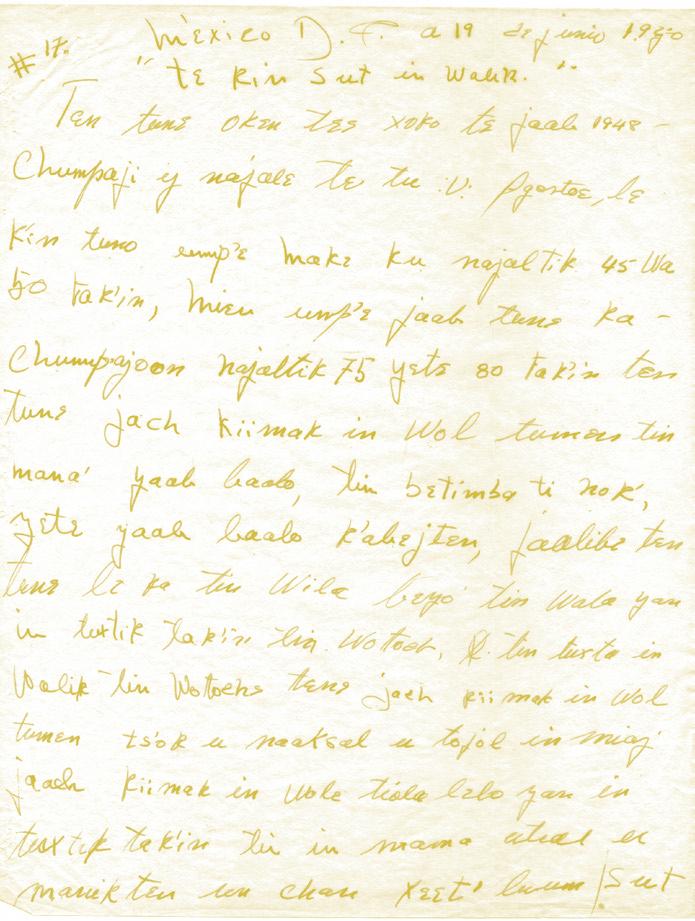 México D.F. a 19 de junio 1950
#17.
"te kin sut in walik."
Ten tune oken tes xoko te jaab 1948 -
Chumpaji ij najale te tu Agostoe, le
k'in tuno ump'e make ku najaltik 45 wa
50 tak'in, mieu ump'e jaab tune ka -
chumpajoon najaltik 75 yete 80 tak'in ten
tune jach kiimak in wol tumen tin
mana' yaab baalo, tin betimba ti nok',
yete yaab baalo k'abejten, jaalibe ten
tune le ka tin wila beyo' tin wala yan
in tuxtik tak'in tin wotoch, tin tuxta in
walik tin wotochs tene jach kiimak in wol
tumen ts'ok u naaksal u tojol in miaj
jaach kiimak in wole tiola lelo yan in
tuxtik tak'in ti in mama utial u
manik ten un chan xeet' luum / sut